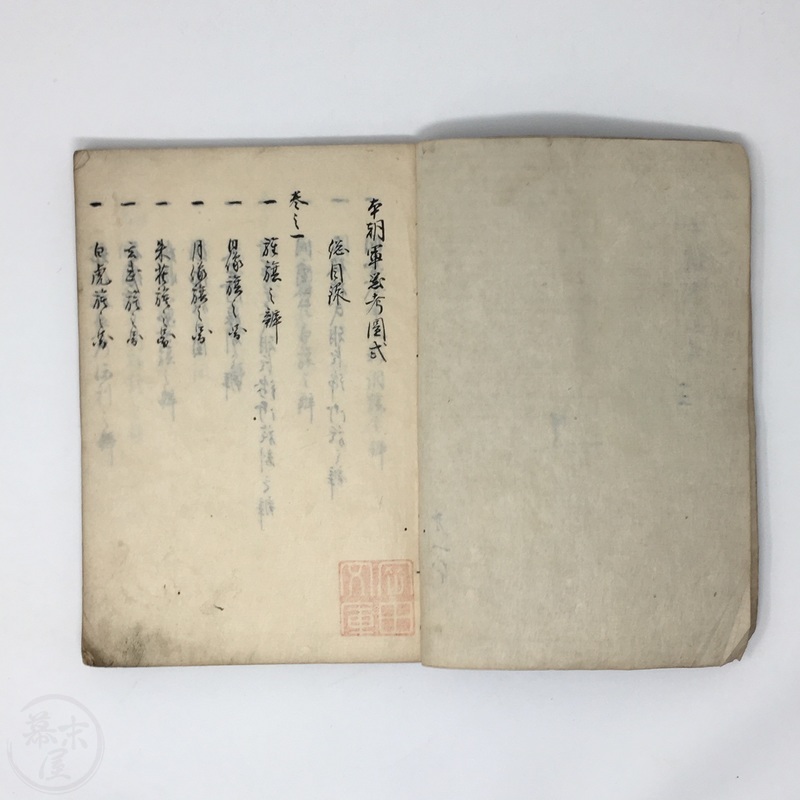 本朝軍器考図式
総目録
巻之一
一 旌旗之辨
一 日像旗之図
一 月像旗之図
一 朱雀旗之図
一 玄武旗之図
一 白虎旗之図
幕末屋